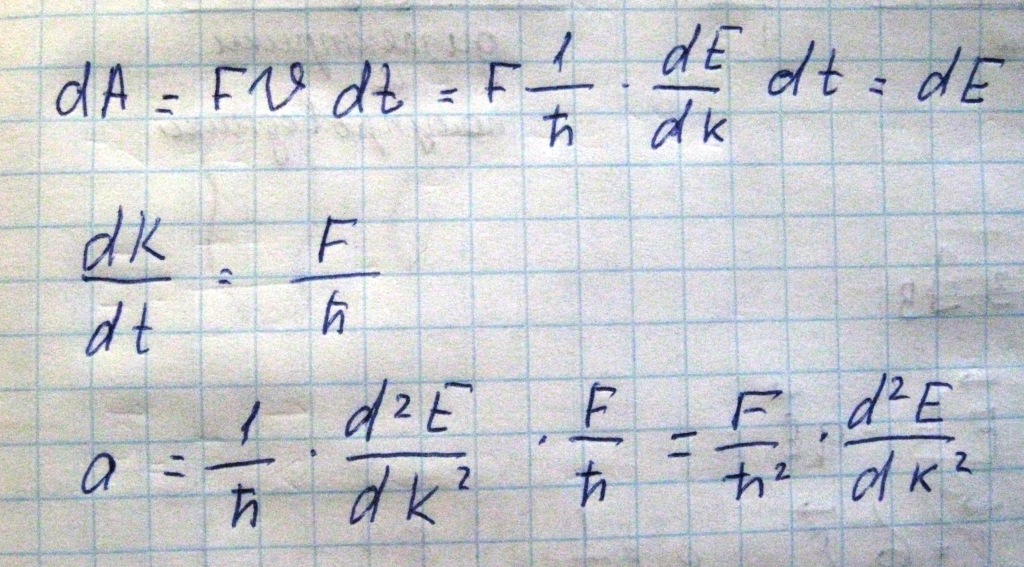 dA = Fv dt = F 1/ħ · dE/dk dt = dE
dk/dt = F/ħ
a = 1/ħ · d²E/dk² · F/ħ = F/ħ² · d²E/dk²